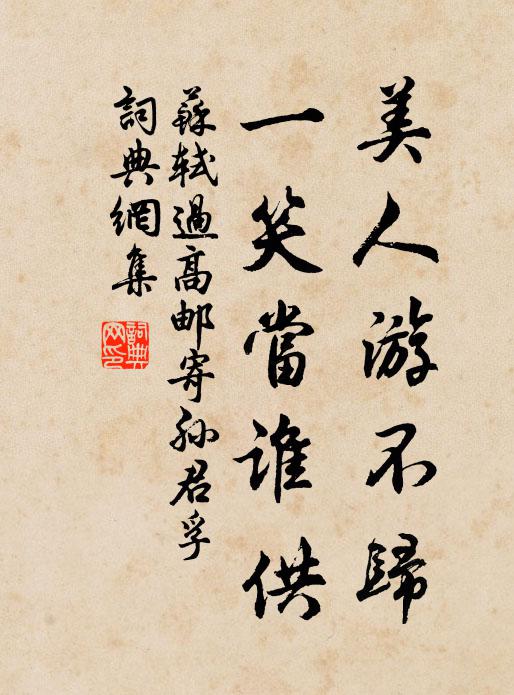 美人游不歸
一笑當誰供
蘇軾過高邮寄孙君孚
詞典網集
詞典网印